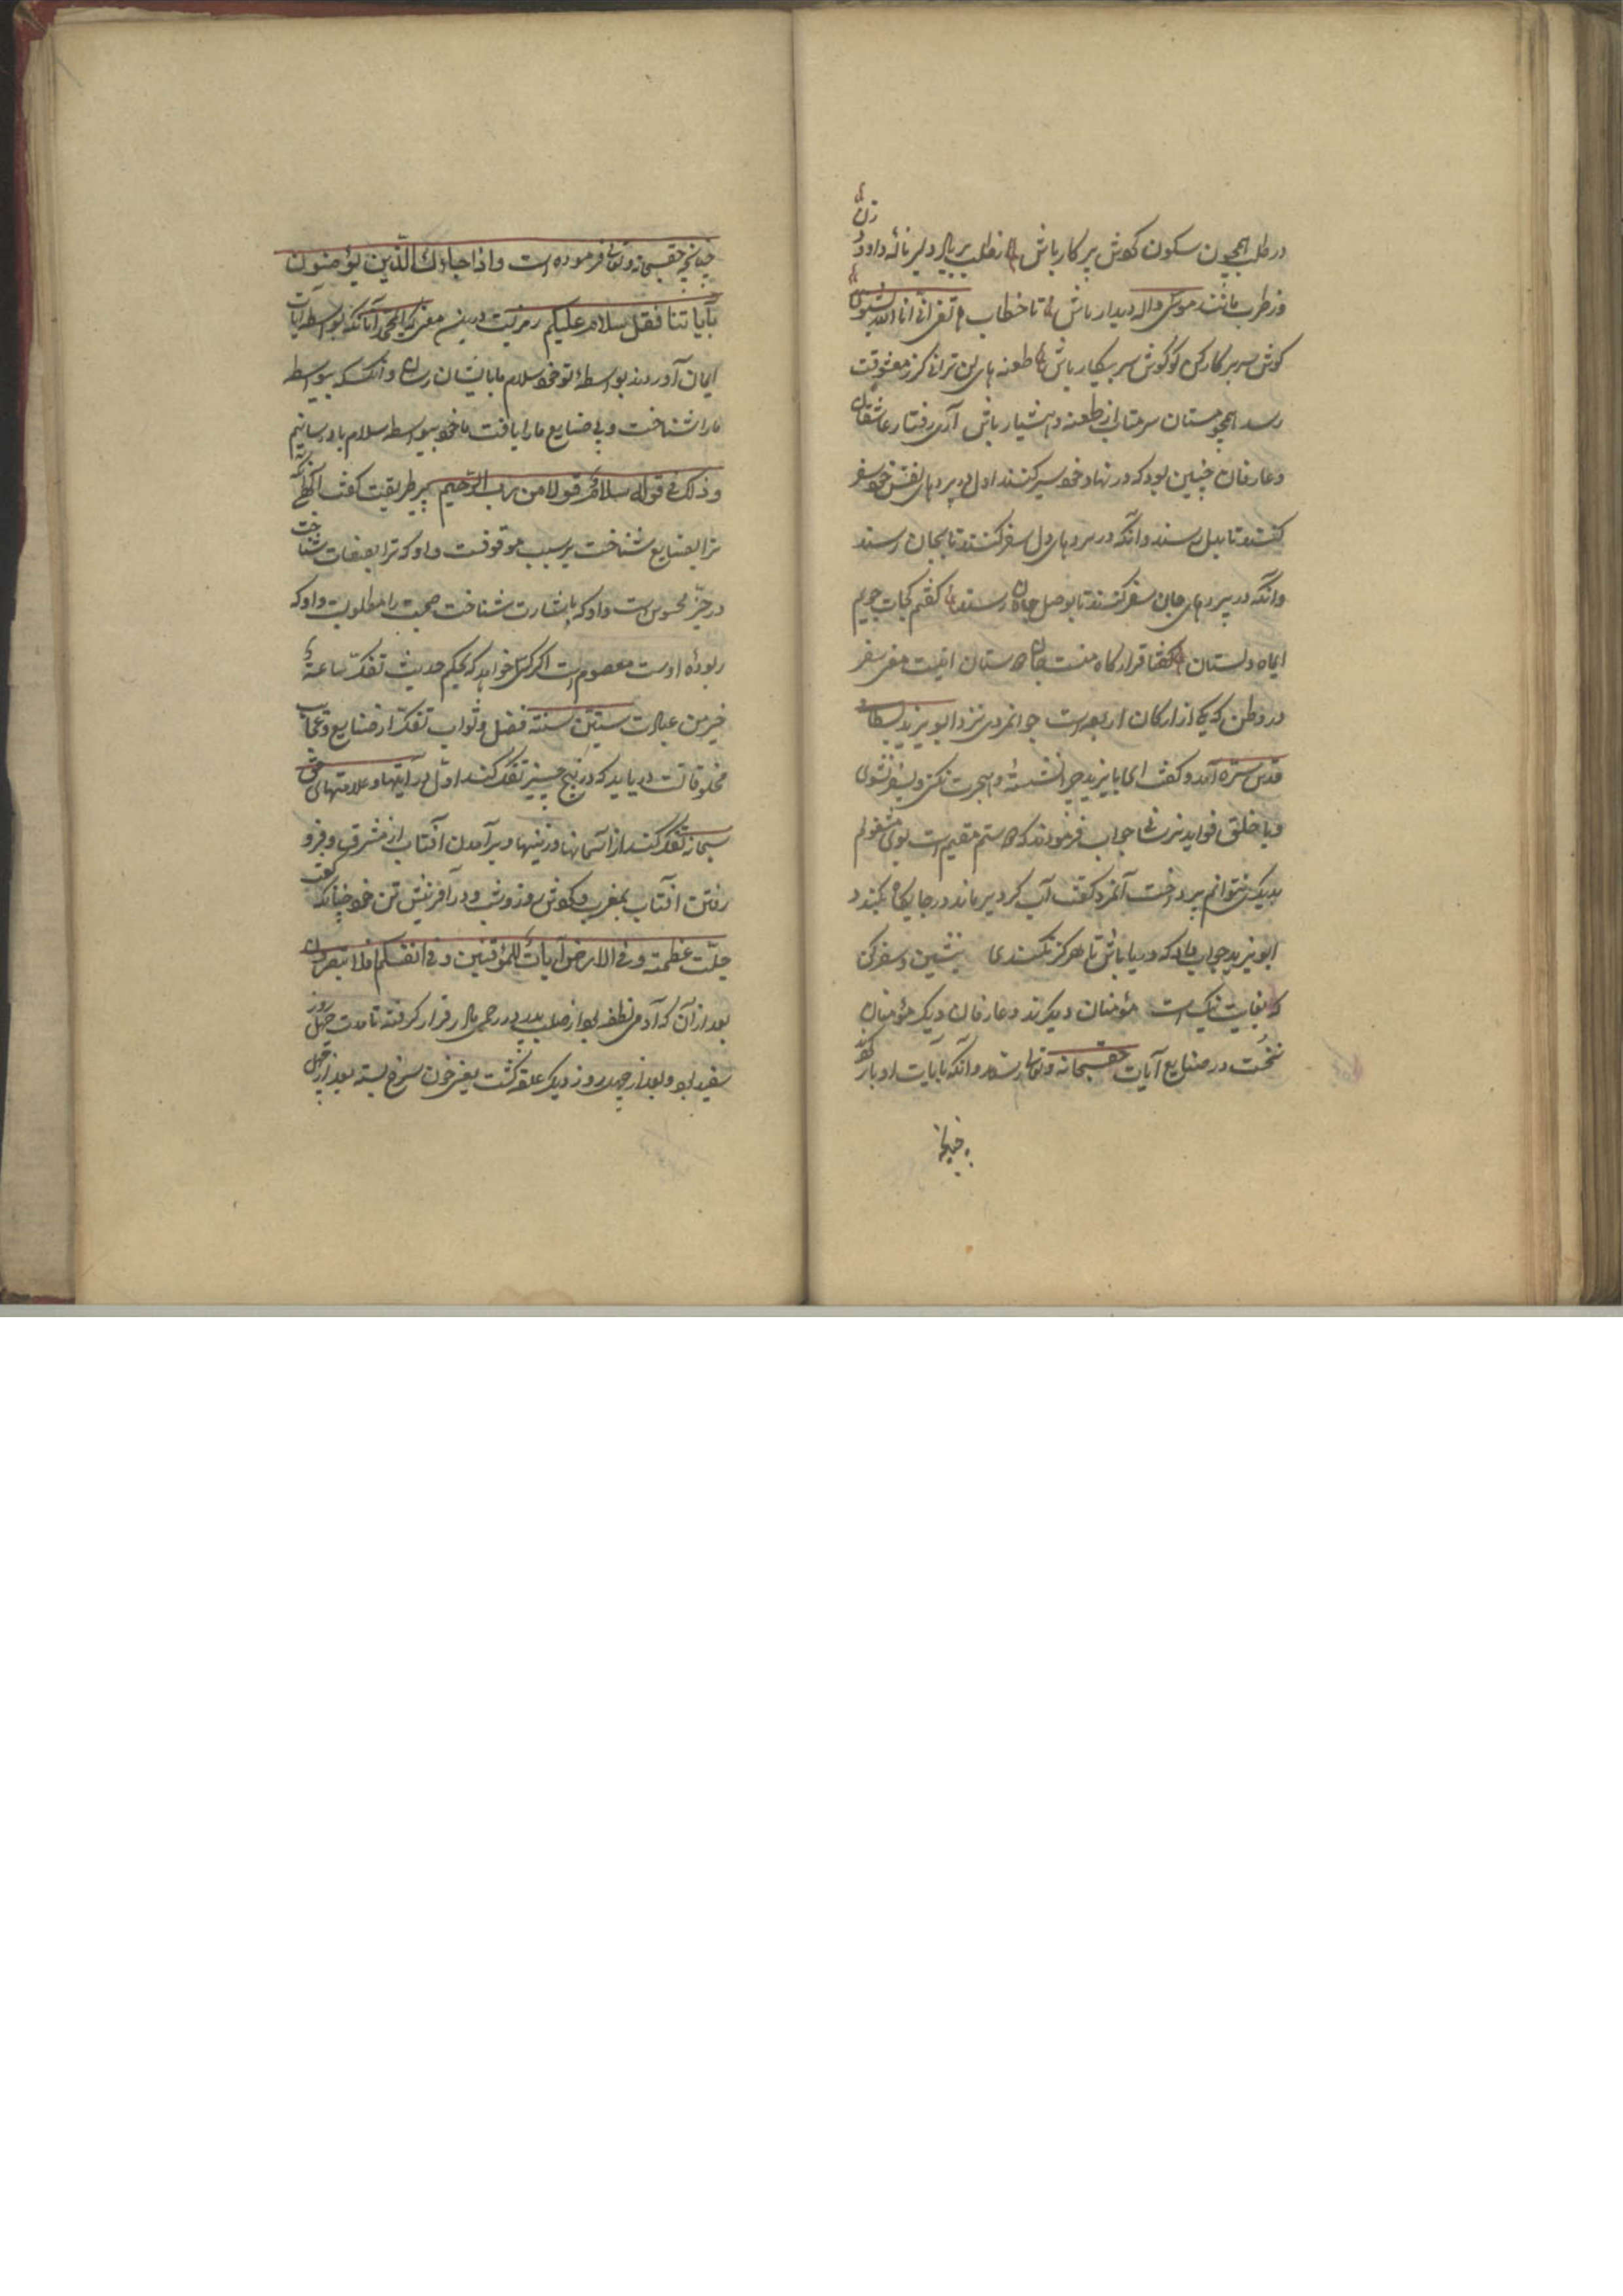 در طلب همچون سکون کوش پرکار باش از طلب بر بال دلبر ناله داود زن
وز طرب مانند موسی واله دیدار باش تا خطاب انی انا الله بشنوی
کوش سر بر کار کن کو کوش سر بیکار باش طعنه های لن ترانی کر ز معشوقت
رسد همچو مستان سر متاب از طعنه و هشیار باش آری رفتار عاشقان
و عارفان چنین بود که در نهاد خود سیر کنند اول در پردهای نفس خود سفر
کنند تا بدل رسند و انکه در پردهای دل سفر کنند تا بجان رسند
و انکه در پردهای جان سفر کنند تا بوصل جانان رسند کفتم کجات جویم
ای ماه دلستان کفتا قرارکاه منست جان دوستان اینست معنی سفر
در وطن که یکی از ارکان اربعه است جوانمردی نزد ابو یزید بسطامی
قدس سره آمد و کفت ای بایزید چرا نشسته و هجرت نکنی و بسفر نشوی
و با خلق فواید نرسانی جواب فرمودند که دوستم مقیم است بوی مشغولم
بدیکری نتوانم پرداخت آنمرد کفت آب کر دیر ماند در جایکاه بکندد
ابو یزید جواب داد که دریا باش تا هرکز نکندی بنشین و سفر کن
که بغایت نیک است مؤمنان دیکرند و عارفان دیکر مؤمنان
نخست در صنایع آیات حق سبحانه و تعالی رسند و انکه بآیات او باز کردند
چنانچه
چنانچه حق سبحانه و تعالی فرموده است واذا جاءك الذین یؤمنون
بآیاتنا فقل سلام علیکم رمزیست درین معنی که ای محمد آنانکه بواسطه آیات
ایمان آوردند بواسطه تو خود سلام ما بایشان رسان و انکسکه بیواسطه
ما را شناخت و بی صنایع ما را یافت ما خود بیواسطه سلام باو رسانیم
وذلك فی قوله سلام قولا من رب الرحیم پیر طریقت کفت الهی آنکه
ترا بصنایع شناخت بر سبب موقوفست و او که ترا بصفات شناخت
در خبر محبوس است و او که باشارت شناخت صحبت را مطلوبست و او که
ربوده اوست معصوم است اکر کسی خواهد که بحکم حدیث تفکر ساعة
خیر من عبادت ستین سنة فضل و ثواب تفکر از صنایع و عجایب
مخلوقات دریابد که در پنج چیز تفکر کند اول در آیتها و علامتهای حق
سبحانه تفکر کند از آسمانها و زمینها و برآمدن آفتاب از مشرق و فرو
رفتن آفتاب بمغرب و کردش روز و شب و در آفرینش تن خود چنانکه کفت
جلت عظمته وفی الارض آیات للموقنین وفی انفسکم افلا تبصرون
بعد از آن که آدمی نطفه بود از صلب پدر در رحم مادر قرار کرفته تا مدت چهل روز
سفید بود و بعد از چهل روز دیکر علقه کشت یعنی خون سرخ بسته بعد از چهل